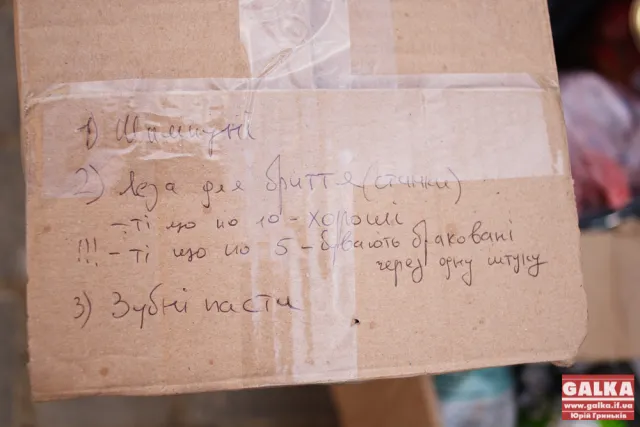 1) Шампуні
2) Леза для бриття (станки)
- ті що по 10 - хороші
!!! - ті що по 5 - бувають браковані
через одну штуку
3) Зубні пасти
GALKA
www.galka.if.ua
Юрій Гриньків